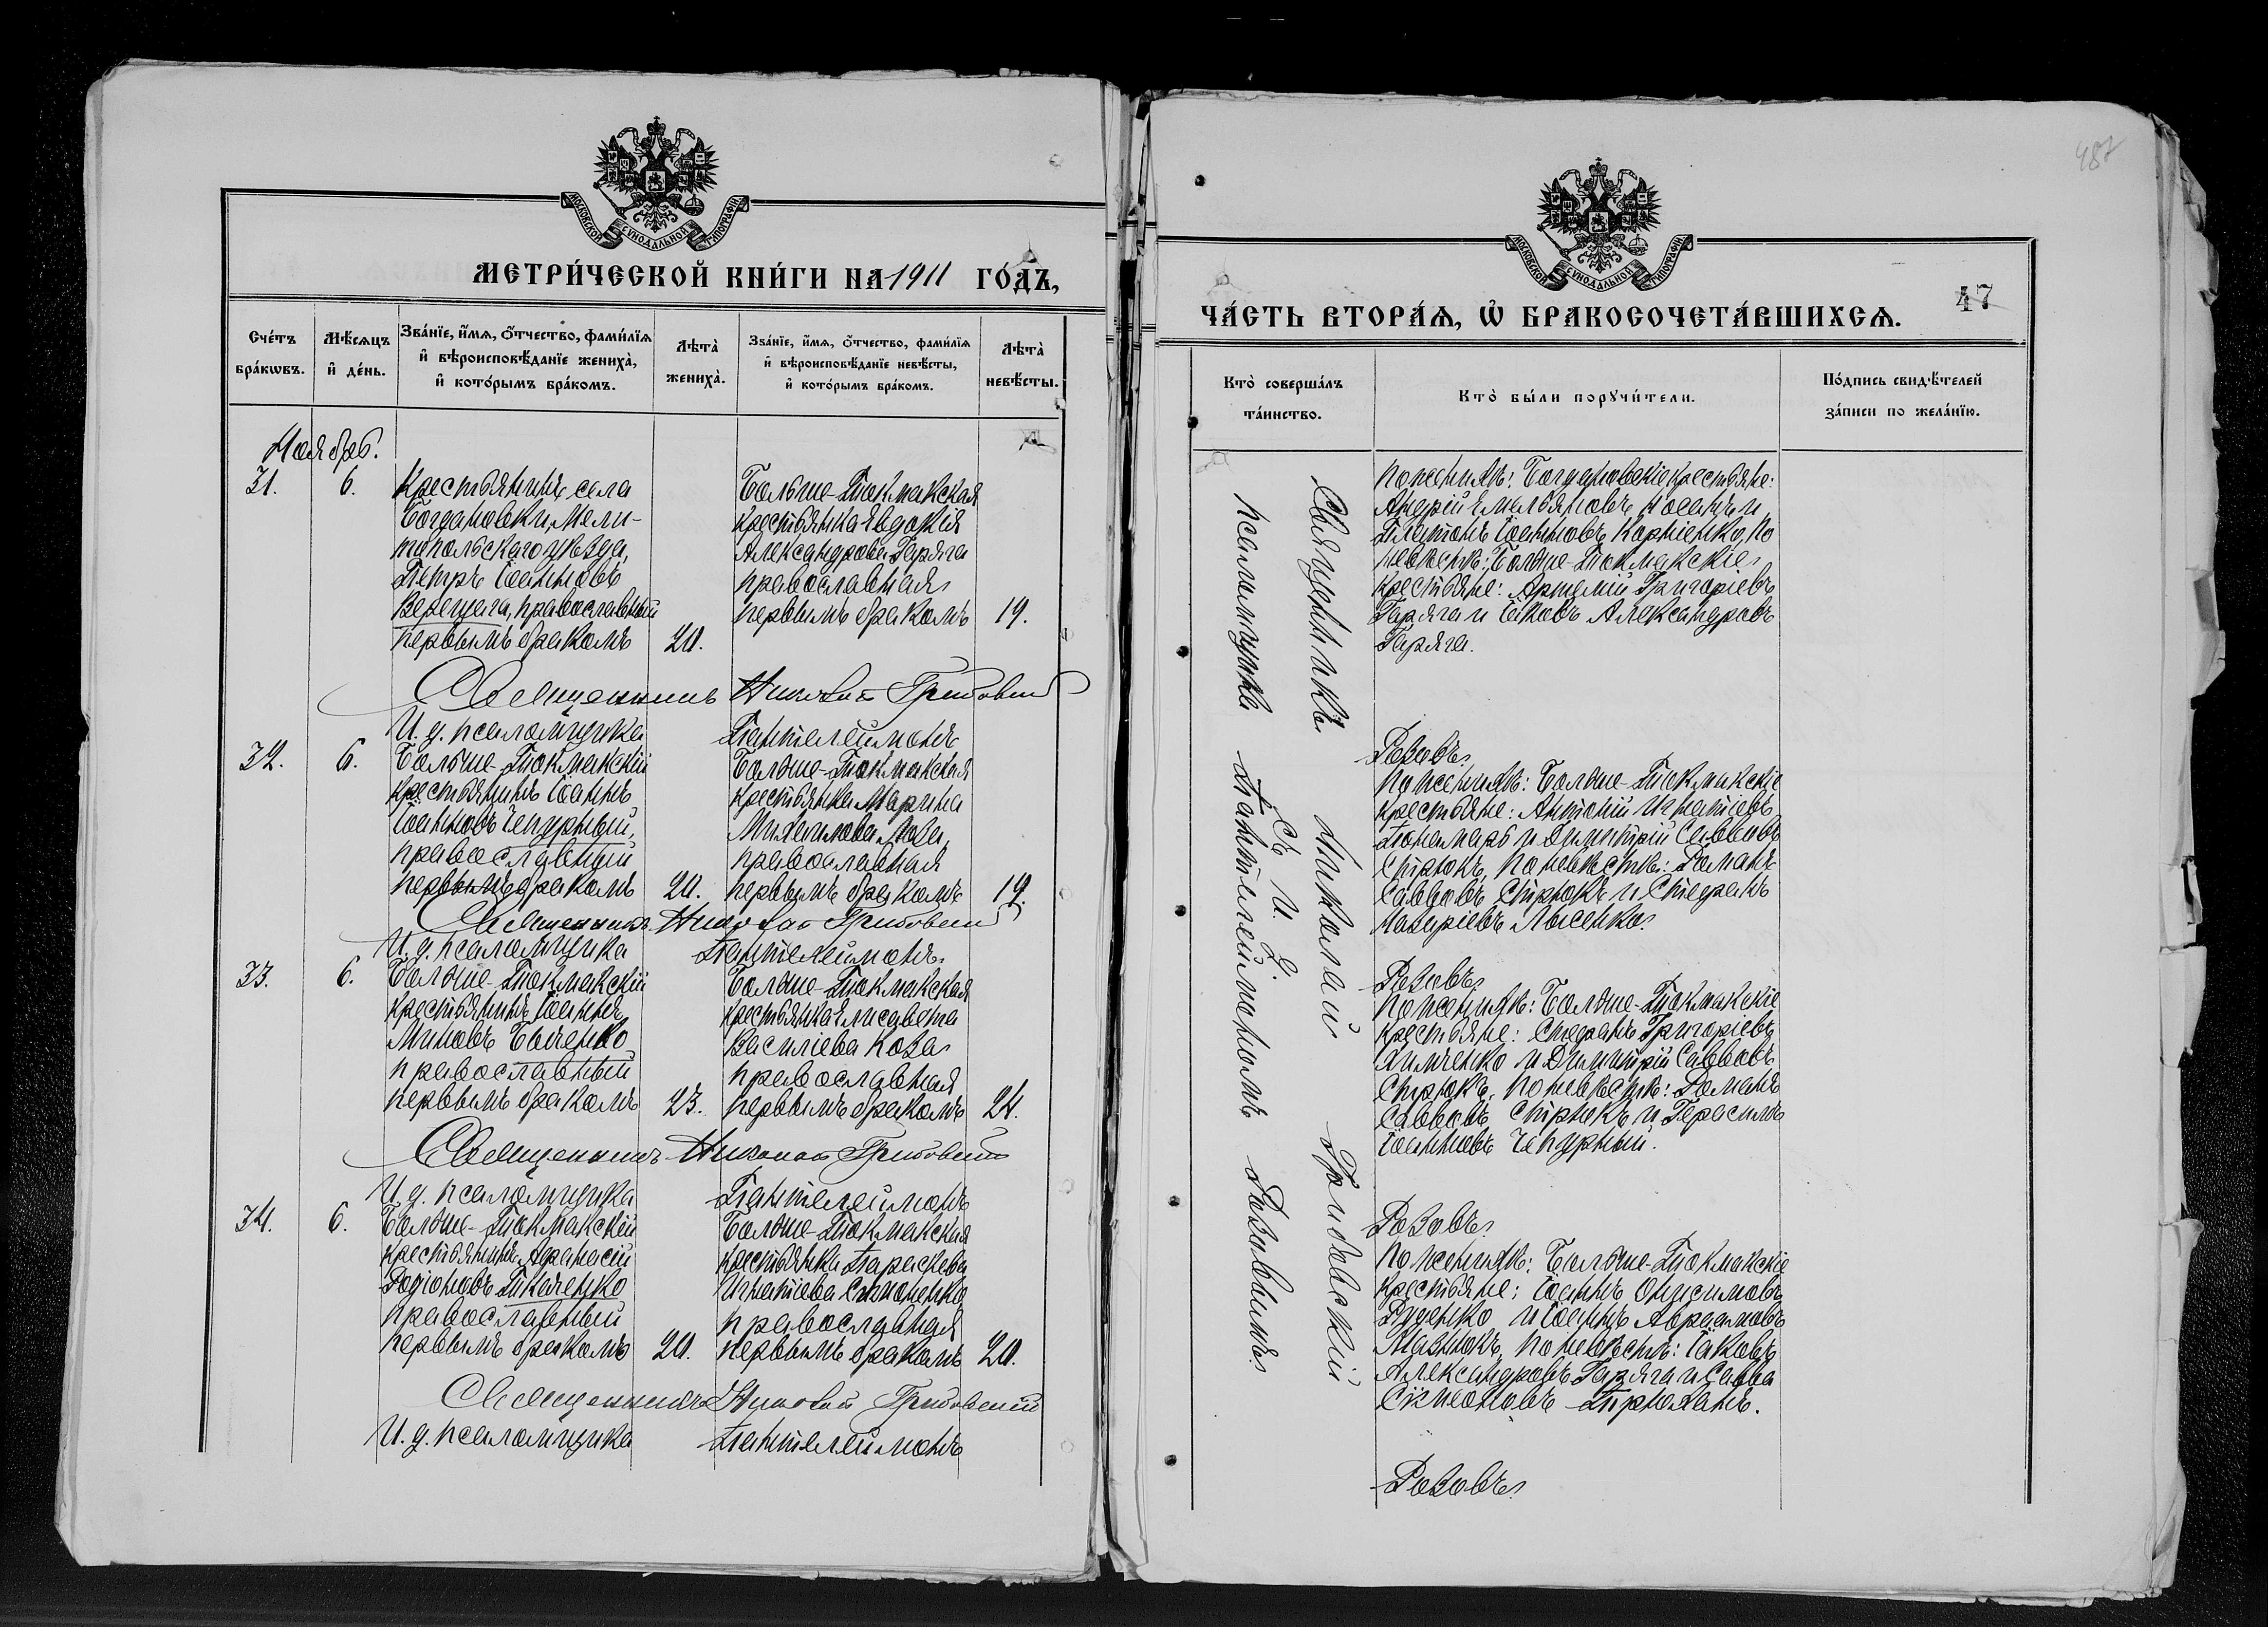 487
МОСКОВСКОЙ СѴНОДАЛЬНОЙ ТИПОГРАФІИ
МЕТРИ́ЧЕСКОЙ КНИ́ГИ НА 1911 ГО́ДЪ,
Сче́тъ бра́кѡвъ.
Мѣ́сѧцъ и҆ де́нь.
Зва́нїе, и҆́мѧ, о҆́тчество, фами́лїѧ и҆ вѣроисповѣ́данїе жениха̀, и҆ кото́рымъ бра́комъ.
Лѣта̀ жениха̀.
Зва́нїе, и҆́мѧ, о҆́тчество, фами́лїѧ и҆ вѣроисповѣ́данїе невѣ́сты, и҆ кото́рымъ бра́комъ.
Лѣта̀ невѣ́сты.
Ноябрь.
31.
6.
Крестьянинъ села
Богдановки, Мели-
топольскаго уѣзда,
Петръ Іоанновъ
Верещага, православный
первымъ бракомъ
20.
Больше-Токмакская
крестьянка Евдокія
Александрова Гаряга
православная
первымъ бракомъ
19.
Священникъ Николай Грибовскій
И. д. псаломщика Пантелеймонъ
32.
6.
Больше-Токмакскій
крестьянинъ Іоаннъ
Іоанновъ Чепурный,
православный
первымъ бракомъ
20.
Больше-Токмакская
крестьянка Марина
Михаилова
православная
первымъ бракомъ
19.
Священникъ Николай Грибовскій
И. д. псаломщика Пантелеймонъ
33.
6.
Больше-Токмакскій
крестьянинъ Іоаннъ
Миновъ Быченко
православный
первымъ бракомъ
23.
Больше-Токмакская
крестьянка Елисавета
Василіева Коза
православная
первымъ бракомъ
21.
Священникъ Николай Грибовскій
И. д. псаломщика Пантелеймонъ
34.
6.
Больше-Токмакскій
крестьянинъ Афанасій
Родіоновъ Ткаченко
православный
первымъ бракомъ
20.
Больше-Токмакская
крестьянка Параскева
Игнатіева Симоненко
православная
первымъ бракомъ
20.
Священникъ Николай Грибовскій
И. д. псаломщика Пантелеймонъ
МОСКОВСКОЙ СѴНОДАЛЬНОЙ ТИПОГРАФІИ
ЧА́СТЬ ВТОРА́Ѧ, Ѡ҆ БРАКОСОЧЕТА́ВШИХСѦ.
47
Кто̀ соверша́лъ та́инство.
Кто̀ бы́ли порꙋчи́тели.
По́дпись свидѣ́телей за́писи по жела́нїю.
Священникъ Николай Грибовскій
съ И. д.
псаломщика Пантелеймономъ Розовымъ.
По женихѣ: Богдановскіе крестьяне:
Андрій Емельяновъ и
Платонъ Іоанновъ Корніенко, по
невѣстѣ: Больше-Токмакскіе
крестьяне: Артемій Григоріевъ
Гаряга и Іаковъ Александровъ
Гаряга.
Розовъ.
По женихѣ: Больше-Токмакскіе
крестьяне: Антоній Игнатіевъ
Пономарь и Димитрій Саввовъ
Стрюкъ, по невѣстѣ: Романъ
Саввовъ Стрюкъ и Стефанъ
Назаріевъ Лысенко.
Розовъ.
По женихѣ: Больше-Токмакскіе
крестьяне: Стефанъ Григоріевъ
Химченко и Димитрій Саввовъ
Стрюкъ, по невѣстѣ: Романъ
Саввовъ Стрюкъ и Герасимъ
Іоанновъ Чепурный.
Розовъ.
По женихѣ: Больше-Токмакскіе
крестьяне: Іоаннъ Онисимовъ
Руденко и Іоаннъ Авраамовъ
Мазнюкъ, по невѣстѣ: Іаковъ
Александровъ Гаряга и Савва
Сѵмеоновъ
Розовъ.